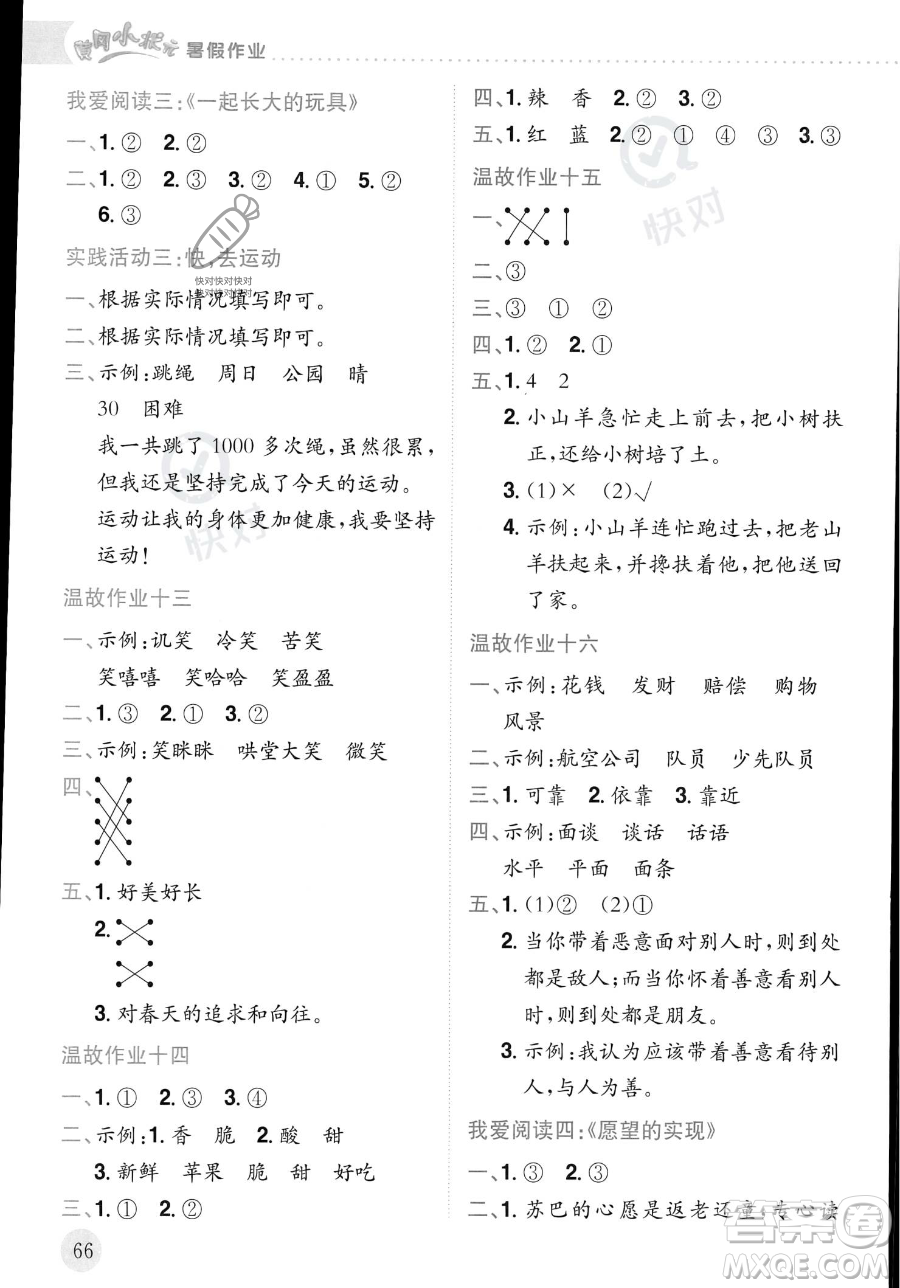 黄冈小状元 暑假作业
我爱阅读三:《一起长大的玩具》
一、1.② 2.②
二、1.② 2.③ 3.② 4.① 5.②
6.③
实践活动三:快,去运动
一、根据实际情况填写即可。
二、根据实际情况填写即可。
三、示例:跳绳 周日 公园 晴
30 困难
我一共跳了 1000 多次绳,虽然很累,
但我还是坚持完成了今天的运动。
运动让我的身体更加健康,我要坚持
运动!
温故作业十三
一、示例:讥笑 冷笑 苦笑
笑嘻嘻 笑哈哈 笑盈盈
二、1.③ 2.① 3.②
三、示例:笑眯眯 哄堂大笑 微笑
四、
五、1.好美好长
2.
3.对春天的追求和向往。
温故作业十四
一、1.① 2.③ 3.④
二、示例:1.香 脆 2.酸 甜
3.新鲜 苹果 脆 甜 好吃
三、1.① 2.②
66
四、1.辣 香 2.② 3.②
五、1.红 蓝 2.② ① ④ ③ 3.③
温故作业十五
一、
二、③
三、③ ① ②
四、1.② 2.①
五、1.4 2
2.小山羊急忙走上前去,把小树扶
正,还给小树培了土。
3.(1)× (2)√
4.示例:小山羊连忙跑过去,把老山
羊扶起来,并搀扶着他,把他送回
了家。
温故作业十六
一、示例:花钱 发财 赔偿 购物
风景
二、示例:航空公司 队员 少先队员
三、1.可靠 2.依靠 3.靠近
四、示例:面谈 谈话 话语
水平 平面 面条
五、1.(1)② (2)①
2.当你带着恶意面对别人时,则到处
都是敌人;而当你怀着善意看别人
时,则到处都是朋友。
3.示例:我认为应该带着善意看待别
人,与人为善。
我爱阅读四:《愿望的实现》
一、1.③ 2.③
二、1.苏巴的心愿是返老还童,专心读
快对
快对快对快对
快对快对快对
快对
答案卷